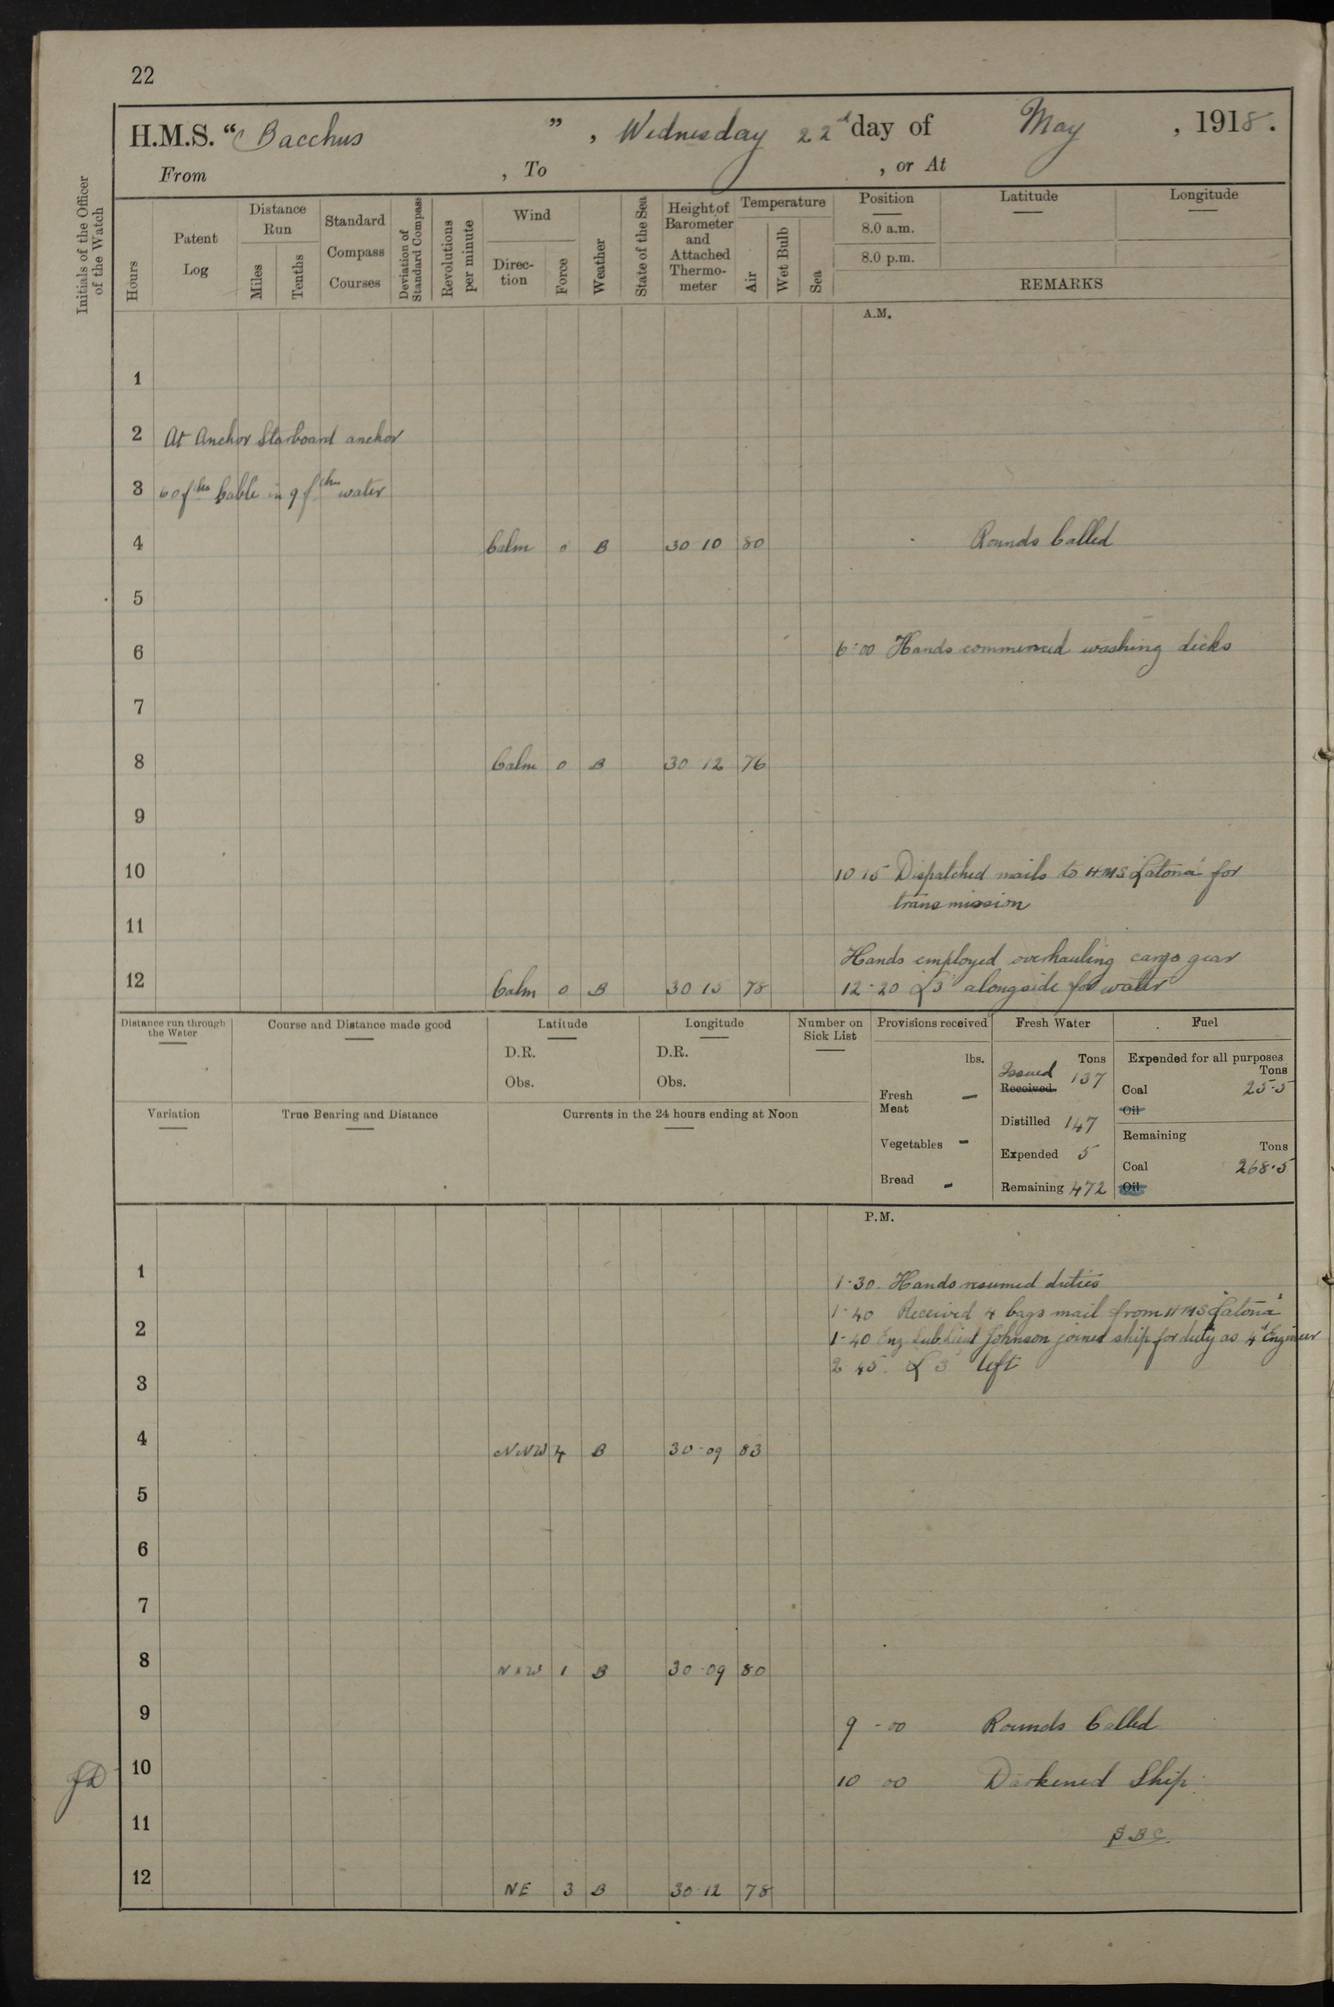 22
H.M.S. “Bacchus ” , Wednesday 22d day of May , 1918.
From , To , or At
Initials of the Officer of the Watch
Hours
Patent Log
Distance Run
Miles
Tenths
Standard Compass Courses
Deviation of Standard Compass
Revolutions per minute
Wind
Direc-tion
Force
Weather
State of the Sea
Height of Barometer and Attached Thermo-meter
Temperature
Air
Wet Bulb
Sea
Position
8.0 a.m.
8.0 p.m.
Latitude
Longitude
REMARKS
A.M.
1
2 At Anchor Starboard anchor
3 60 fths Cable in 9 fthm water
4 Calm 0 B 30 10 80 Rounds Called
5
6 6·00 Hands commenced washing decks
7
8 Calm 0 B 30 12 76
9
10 10 15 Dispatched mails to HMS Latona for
transmission
11
Hands employed overhauling cargo gear
12 Calm 0 B 30 15 78 12·20 L3 alongside for water
Distance run through the Water
Course and Distance made good
Latitude
D.R.
Obs.
Longitude
D.R.
Obs.
Number on Sick List
Provisions received
lbs.
Fresh Meat —
Vegetables -
Bread -
Fresh Water
Tons
Issued
Received 137
Distilled 147
Expended 5
Remaining 472
Fuel
Expended for all purposes
Tons
Coal 25·5
Oil
Remaining
Tons
Coal 268·5
Oil
Variation
True Bearing and Distance
Currents in the 24 hours ending at Noon
P.M.
1 1·30. Hands resumed duties
1·40 Received 4 bags mail from HMS "Latona"
2 1-40 Eng. Sub. Lieut Johnson joined ship for duty as 4th Engineer
2 45 L 3 left
3
4 NNW 4 B 30·09 83
5
6
7
8 1 B 30·09 80
9 9-00 Rounds Called
10 10 00 Darkened Ship.
11
12 NE 3 B 30·12 78